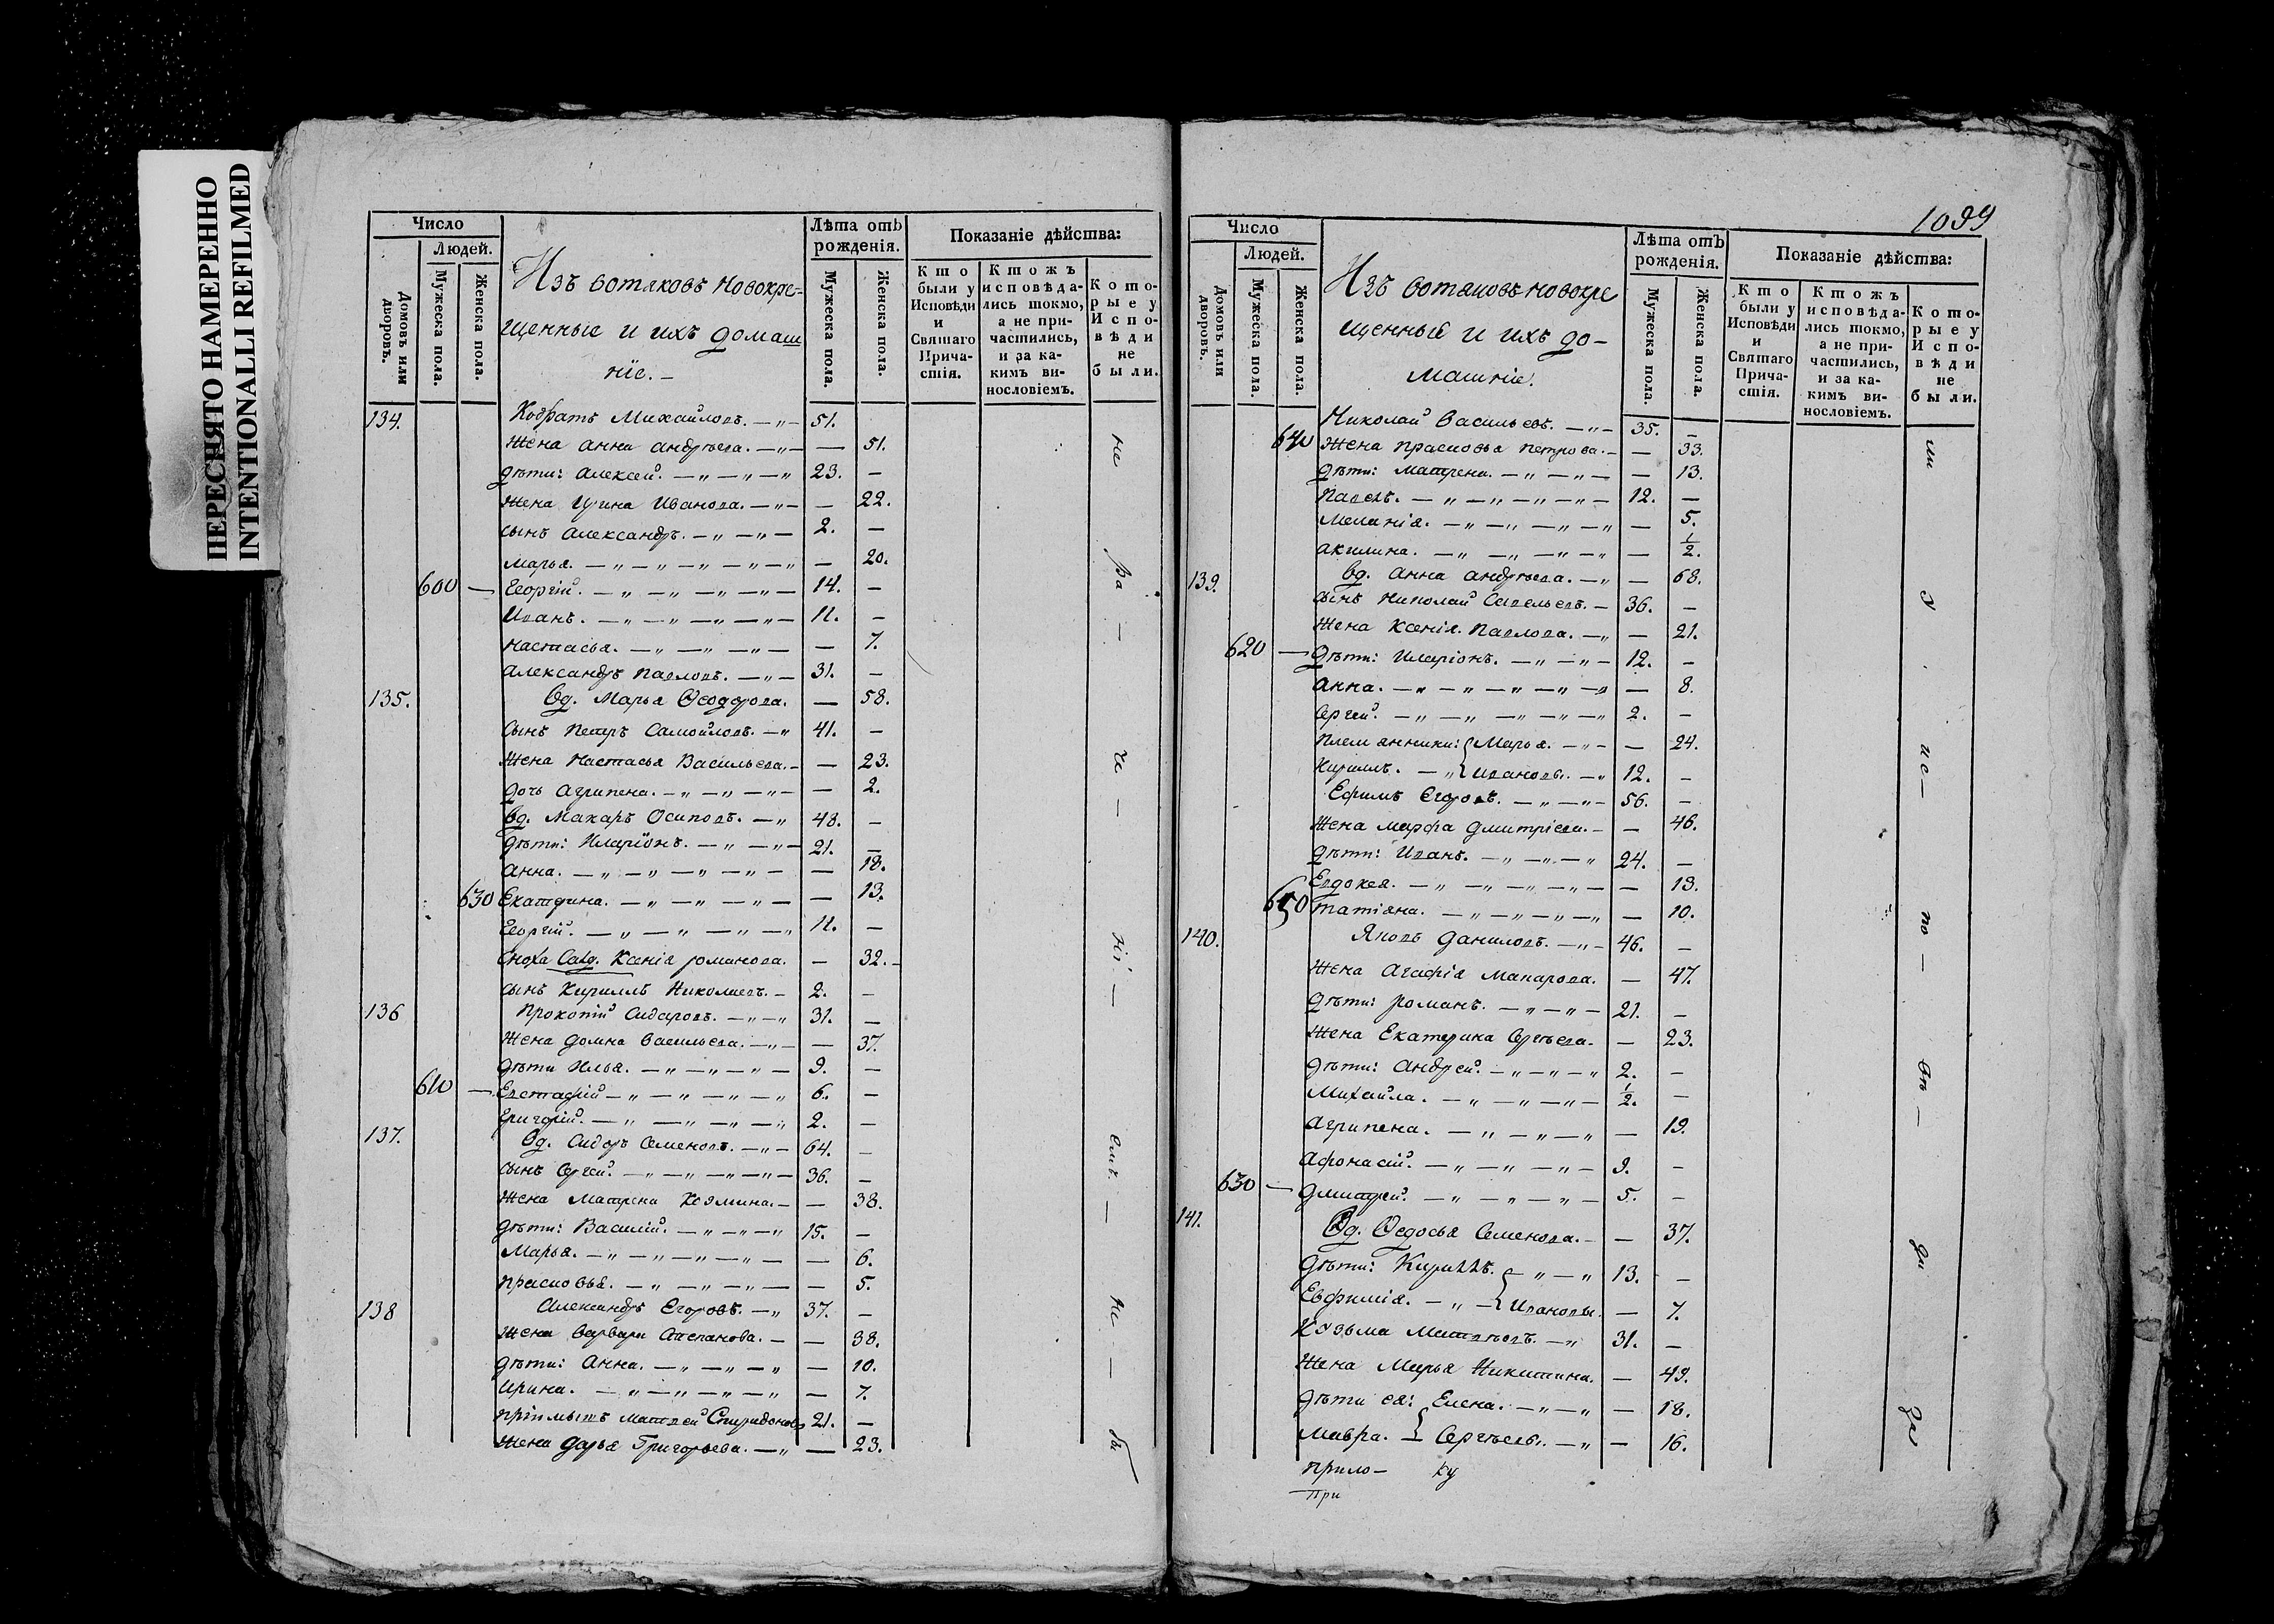 ПЕРЕСНЯТО НАМЕРЕННО
INTENTIONALLI REFILMED
Число
Людей.
Домовъ или дворовъ.
Мужеска пола.
Женска пола.
Изъ вотяковъ новокре-
щенные и ихъ домаш
ніе. –
Лѣта отъ рожденія.
Мужеска пола.
Женска пола.
Показаніе дѣйства:
Кто были у Исповѣди и Святаго Прича-стія.
Ктожъ исповѣда-лись токмо, а не при-частились, и за ка-кимъ ви-нословіемъ.
Кото-рые у Испо-вѣди не были.
134. Кодратъ Михайловъ. — „ — 51.
Жена Анна Андрѣева. — „ — — 51.
дѣти: Алексѣй. — „ — „ — „ 23. —
Жена Ирина Иванова. — „ — — 22.
сынъ Александръ. — „ — „ — 2. —
Марья. — „ — „ — „ — „ — „ — 20.
600 — Георгій. — „ — „ — „ — „ — 14. —
Иванъ. — „ — „ — „ — „ — 11. —
Настасья. — „ — „ — „ — — 7.
Александръ Павловъ. — „ — 31. —
135. Вд. Марья Ѳеодорова. — 58.
Сынъ Петръ Самойловъ. — „ 41. —
Жена Настасья Васильева. — — 23.
дочь Агрипена. — „ — „ — „ — — 2.
Вд. Макаръ Осиповъ. — „ 48. —
дѣти: Иларіонъ. — „ — „ — 21. —
Анна. — „ — „ — „ — „ — — 18.
630 Екатерина. — „ — „ — „ — — 13.
Георгій. — „ — „ — „ — „ 11. —
Сноха Салд. Ксенія Романова. — 32. —
сынъ Кириллъ Николаевъ. — 2. —
136 Прокопій Сидаровъ. — „ — „ 31. —
Жена Домна Васильева. — „ — — 37.
дѣти Илья. — „ — „ — „ — 9. —
610 — Евстафій — „ — „ — „ — „ 6. —
Григорій. — „ — „ — „ — „ 2. —
137. Вд. Сидоръ Семеновъ. — „ — 64. —
сынъ Сергей. — „ — „ — „ — „ — 36. —
Жена Матрена Козмина. — — 38.
дѣти: Василій. — „ — „ — „ 15. —
Марья. — „ — „ — „ — „ — — 6.
Прасковья. — „ — „ — „ — — 5.
138 Александръ Егоровъ. — „ 37. —
Жена Варвара Степанова. — — 38.
дѣти: Анна. — „ — „ — „ — 10.
Ирина. — „ — „ — „ — „ — 7.
Пріимышъ Матвей Спиридоновъ 21. —
Жена Дарья Григорьева. — „ — 23.
не
ра —
че —
ніе —
емъ. —
не —
бы
1099
Число
Людей.
Домовъ или дворовъ.
Мужеска пола.
Женска пола.
Изъ вотяковъ новокре
щенные и ихъ до-
машніе.
Лѣта отъ рожденія.
Мужеска пола.
Женска пола.
Показаніе дѣйства:
Кто были у Исповѣди и Святаго Прича-стія.
Ктожъ исповѣда-лись токмо, а не при-частились, и за ка-кимъ ви-нословіемъ.
Кото-рые у Испо-вѣди не были.
Николай Васильевъ. — „ — 35. —
640 Жена Прасковья Петрова. — — 33.
дѣти: Матрена. — „ — „ — — 13.
Павелъ. — „ — „ — „ — „ — 12. —
Меланія. — „ — „ — „ — „ — 5.
Акилина. — „ — „ — „ — „ — 1/2.
139. Вд. Анна Андрѣева. — „ — 68.
сынъ Николай Савельевъ. — 36. —
Жена Ксенія Павлова. — „ — 21.
620 — дѣти: Иларіонъ. — „ — „ — 12. —
Анна. — „ — „ — „ — „ — „ — 8.
Сергей. — „ — „ — „ — „ — „ 2. —
Племянники: { Марья. — „ — — 24.
Кириллъ. — „ { Ивановы. — „ 12. —
Ефимъ Егоровъ. — „ — „ — 56. —
Жена Марфа Дмитріева. — — 46.
дѣти: Иванъ. — „ — „ — „ 24. —
Евдокея. — „ — „ — „ — „ — — 13.
650 Татіана. — „ — „ — „ — „ — 10.
140. Яковъ Даниловъ. — „ — 46. —
Жена Агафія Макарова. — 47.
дѣти: Романъ. — „ — „ — 21. —
Жена Екатерина Сергѣева. — 23.
дѣти: Андрей. — „ — „ — „ 2. —
Михайла. — „ — „ — „ — 1/2. —
Агрипена. — „ — „ — „ — 19.
Афонасій. — „ — „ — „ — 9. —
630 — Дмитрей. — „ — „ — „ — 5. —
141. Вд. Ѳедосья Семенова. — — 37.
дѣти: Кириллъ. { — „ — „ 13. —
Евфимія. — „ — { Ивановы. — 7.
Кузьма Матвѣевъ. — „ 31. —
Жена Марья Никитина. — 49.
дѣти ея: Елена. — „ — „ — 18.
Мавра. — { Сергѣевы. — „ — 16.
ли
У
ис —
по —
вѣ —
ди
за